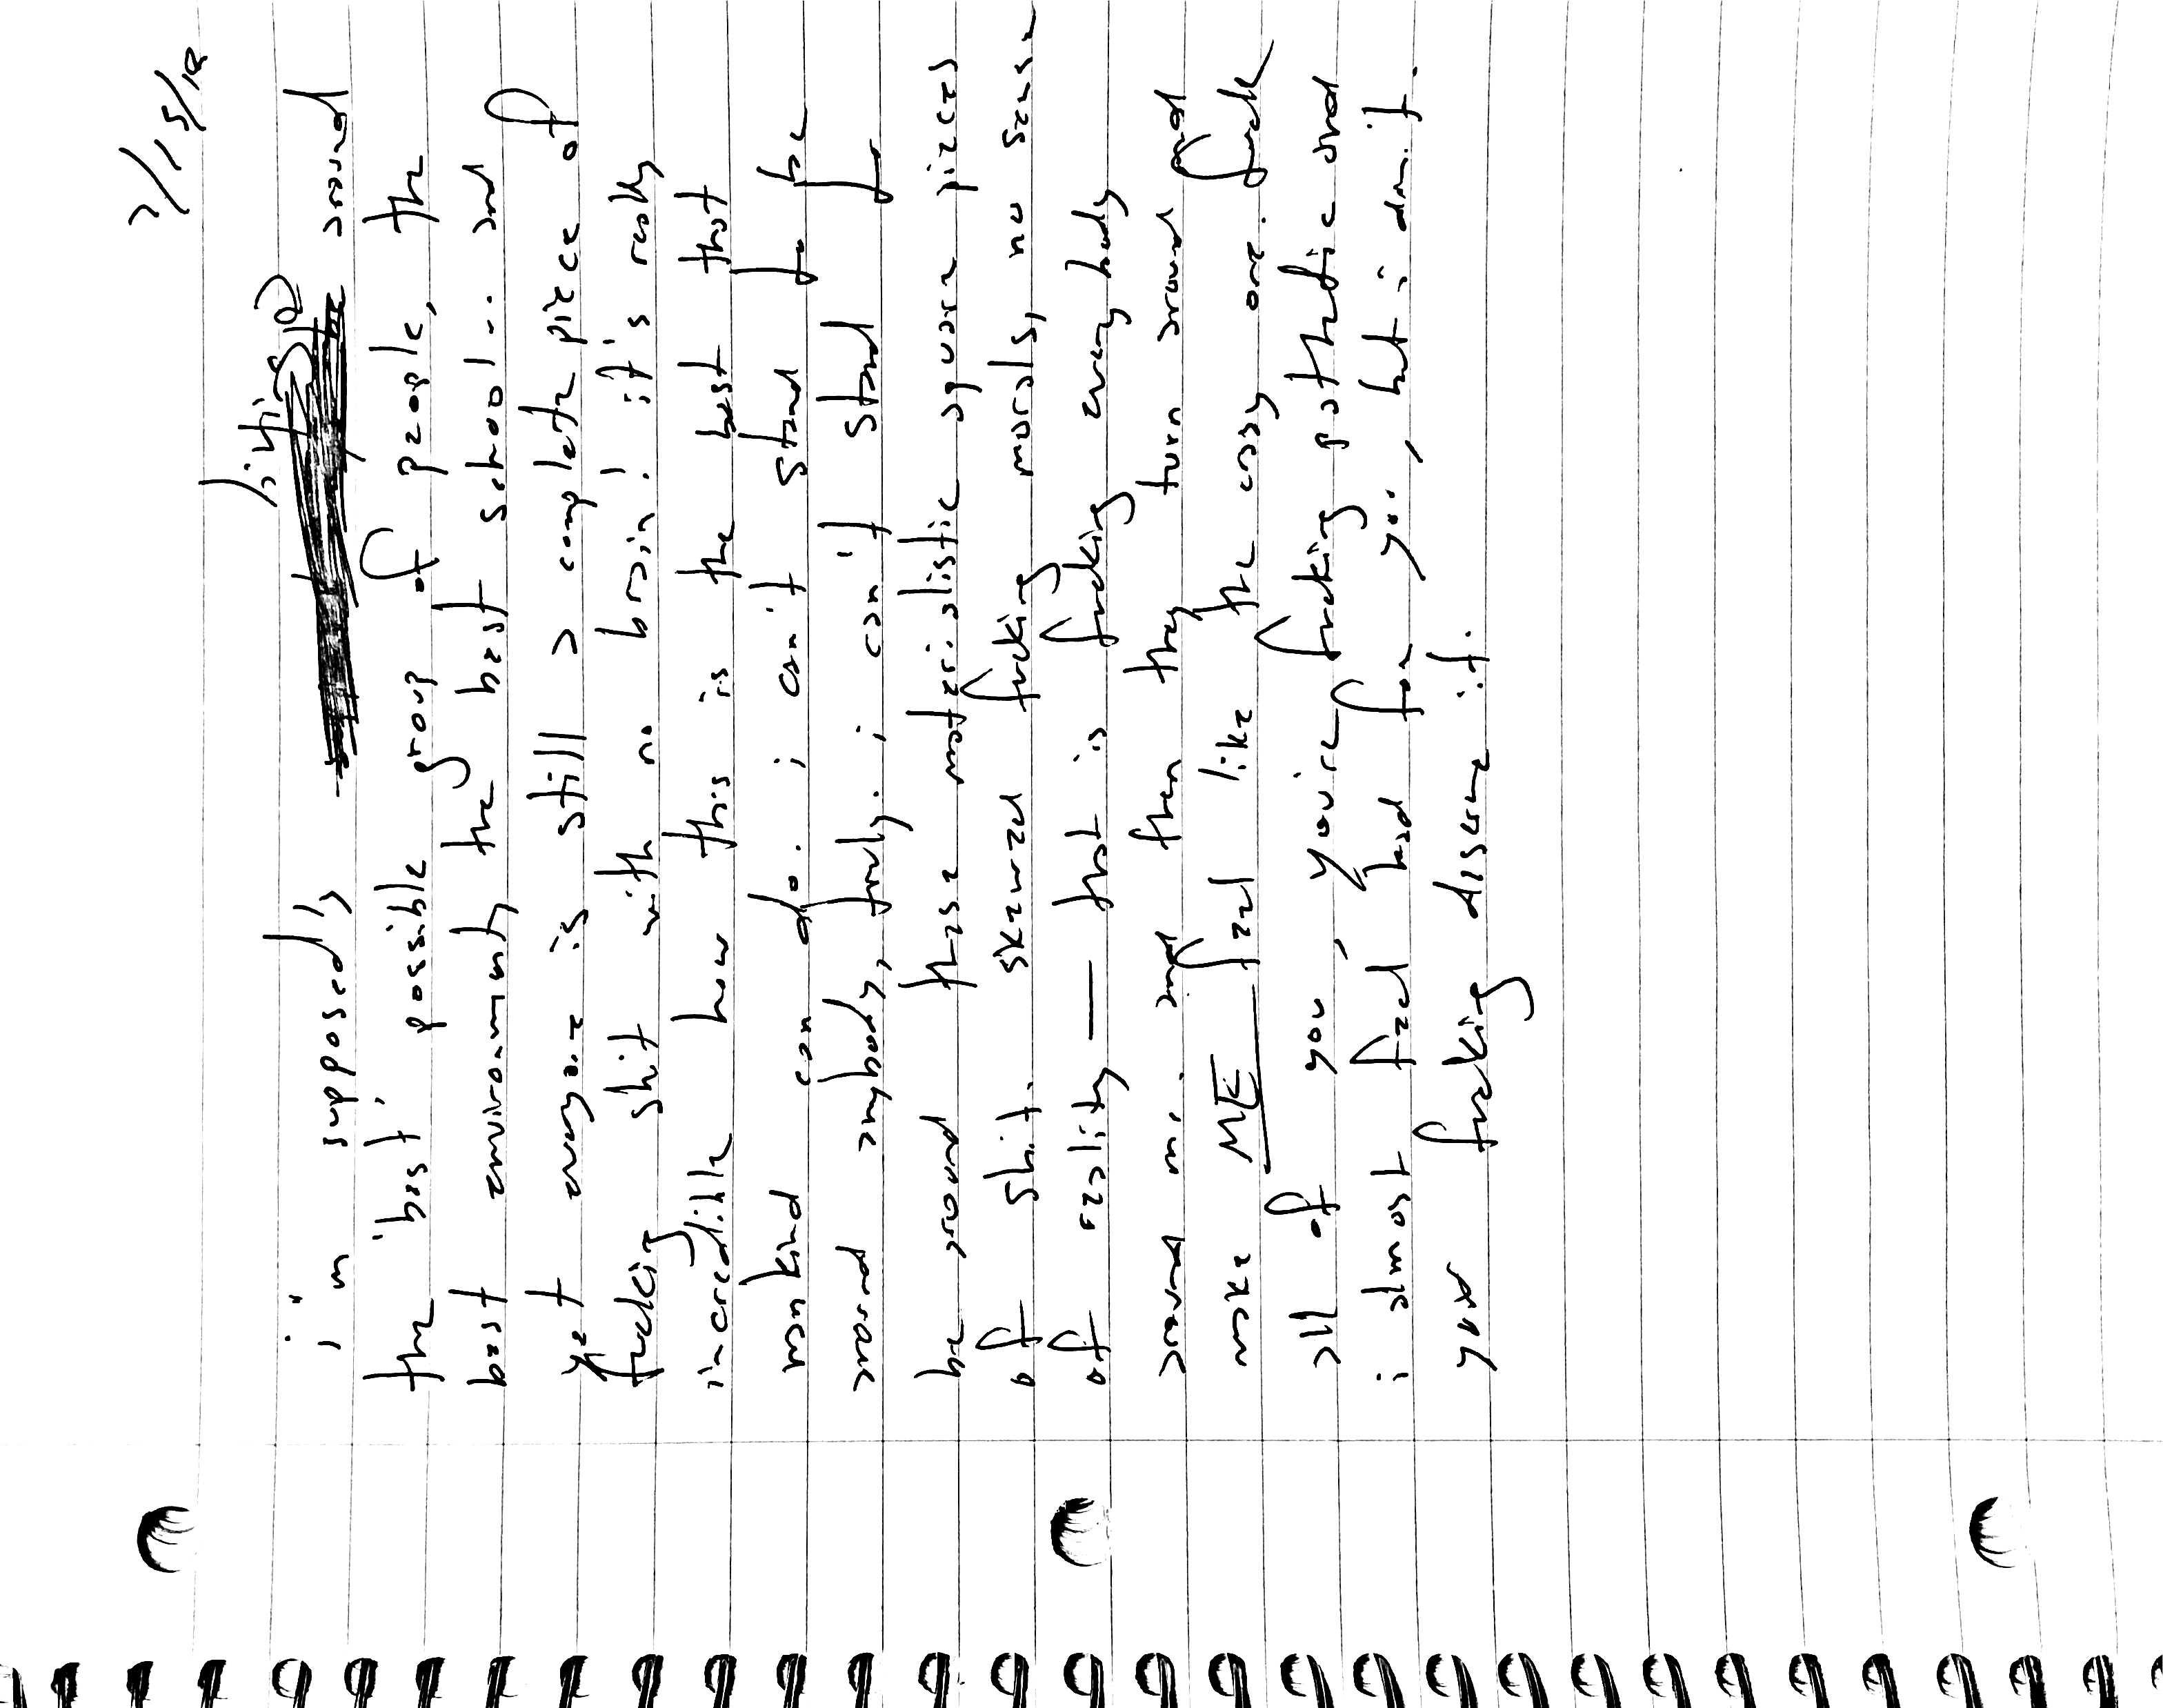 2/15/18
i'm supposed'ly around
the 'best' possible group of people, the
best environment, the best school.. and
yet everyone is still a complete piece of
fucking shit with no brain! it's really
incredible how this is the best that
mankind can do. i can't stand to be
around anybody, truly. i can't stand to
be around these materialistic square pieces
of shit. skewed fucking morals, no sense
of reality — that is fucking everybody
around me. and then they turn around and
make ME feel like the crazy one. fuck
all of you, you're fucking pathetic and
i almost feel bad for you, but i don't.
you fucking deserve it.